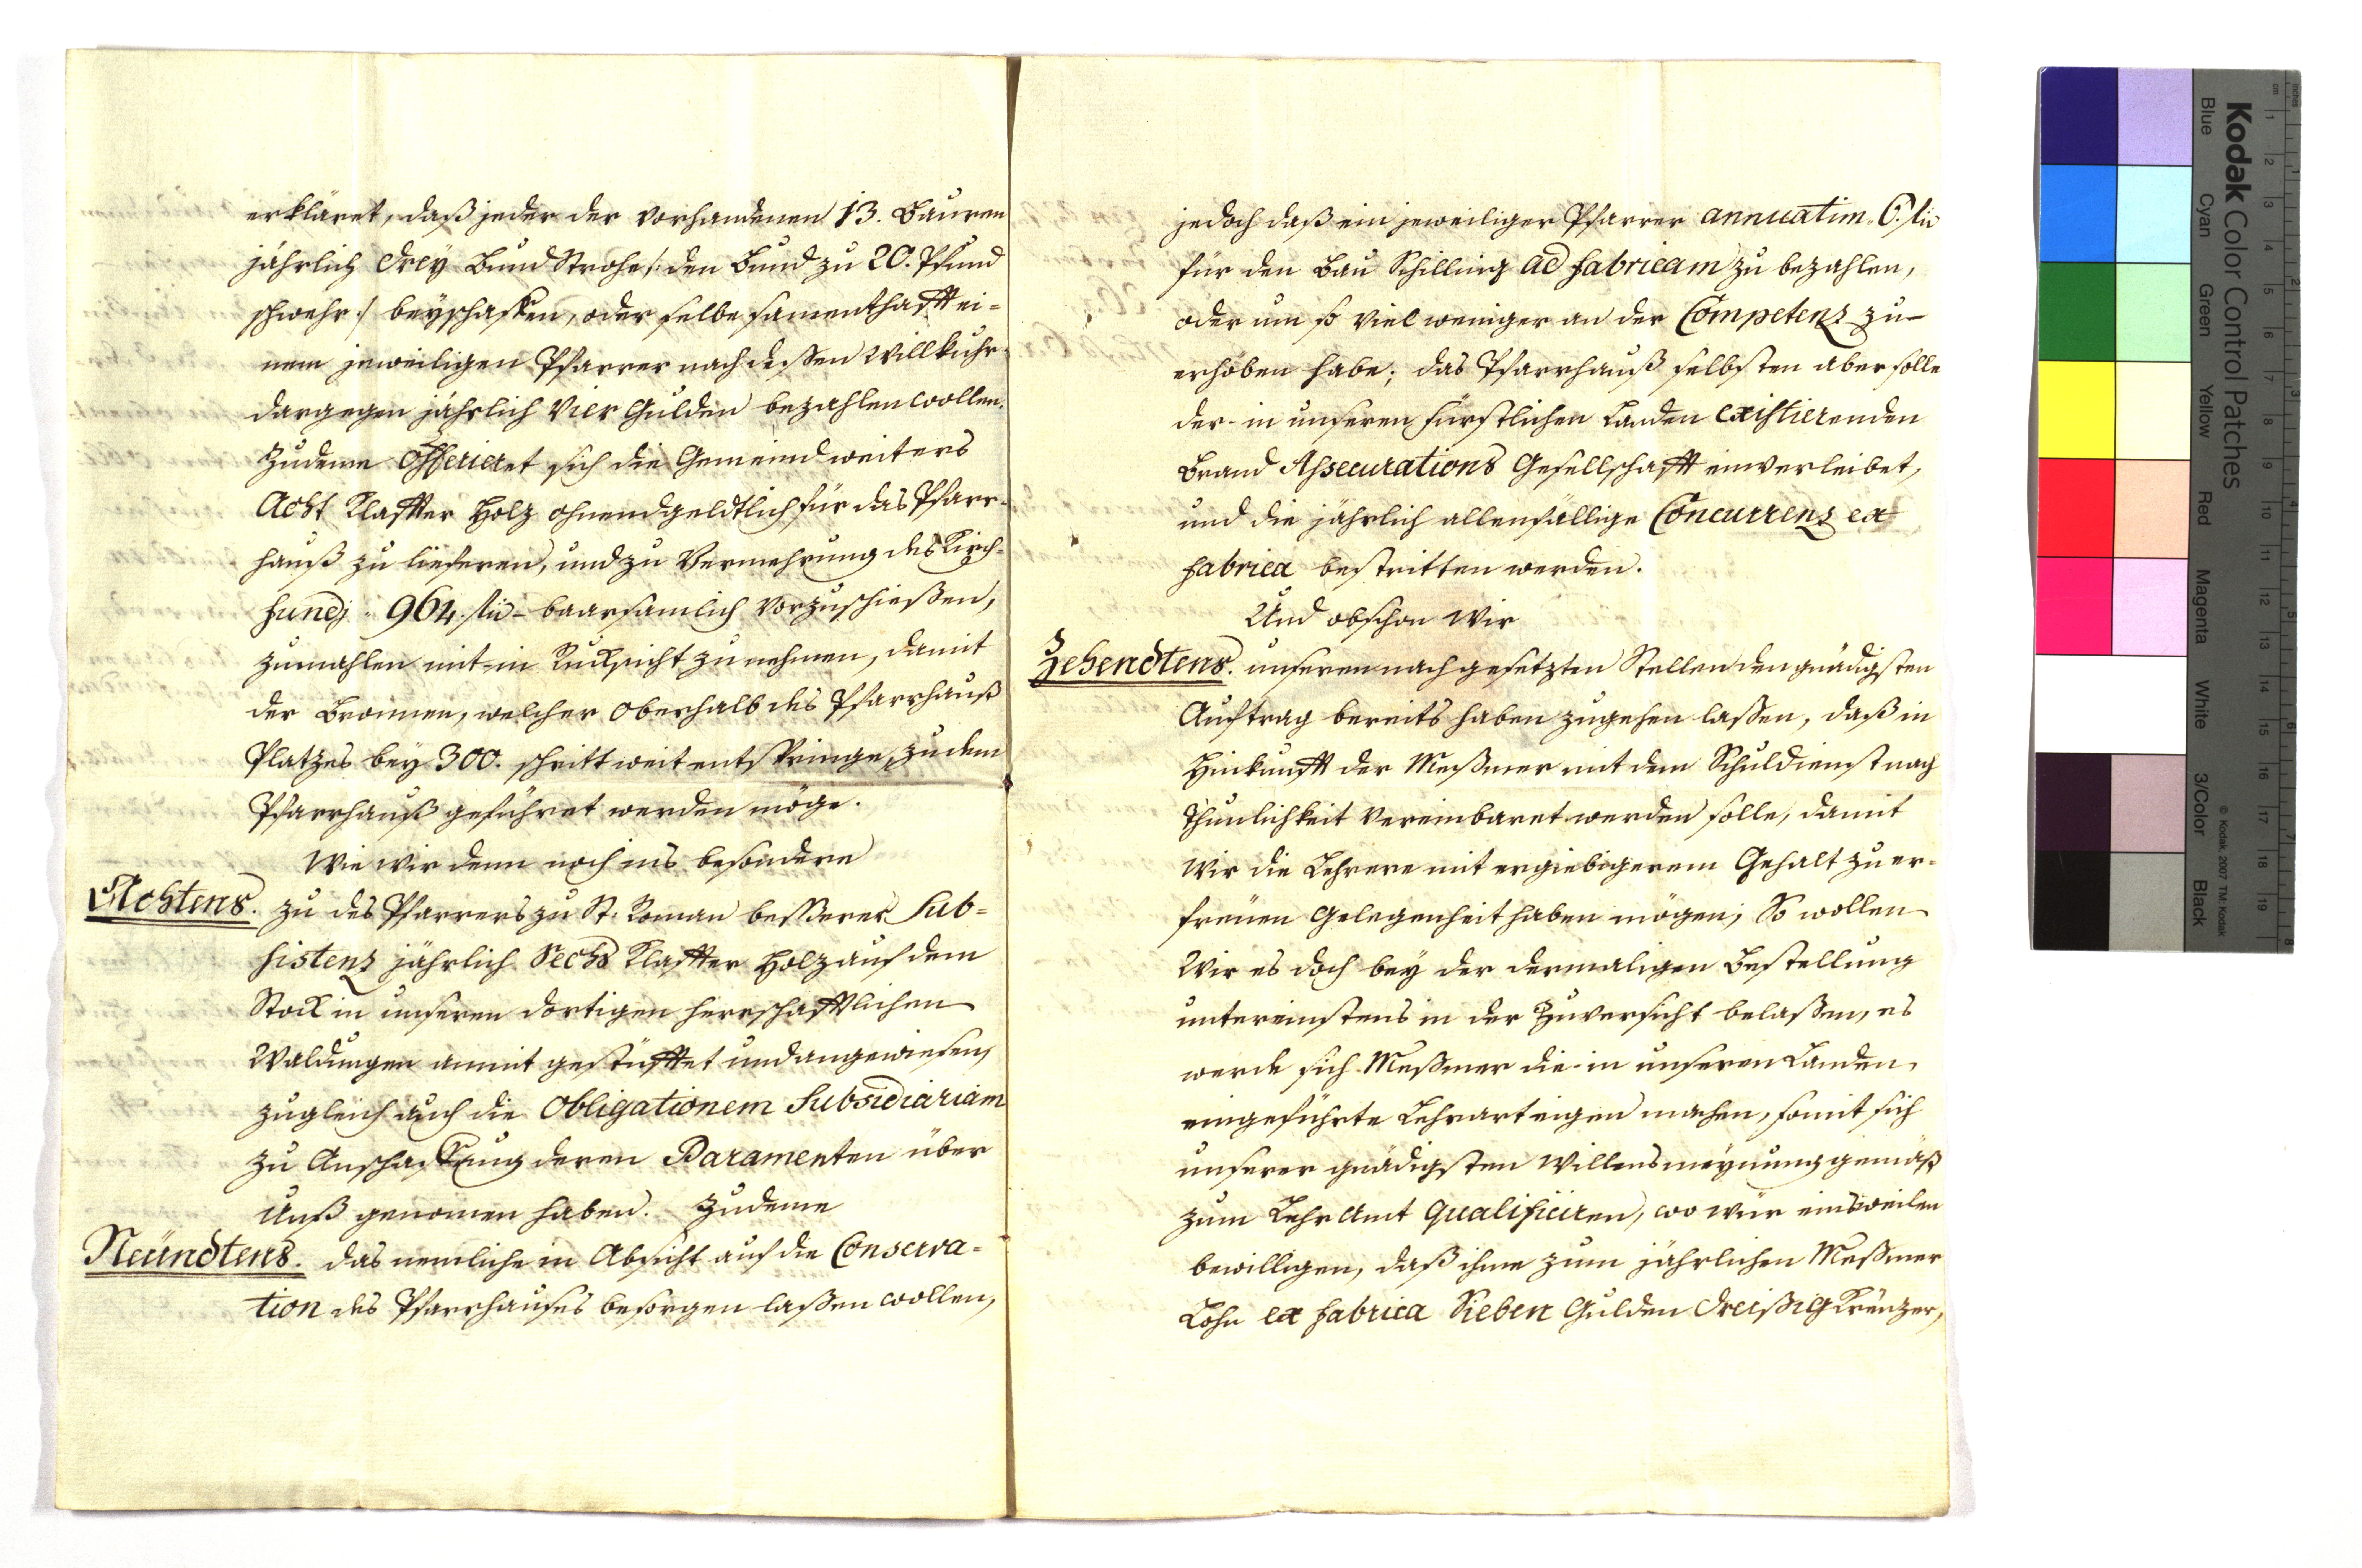 erkläret, daß jeder der vorhandenen 13. Bauren
jährlich drey Bund Strohe /: den Bund zu 20. Pfund
schwehr :/ beyschaffen, oder selbe samenthafft ei-
nem jeweiligen Pfarrer nach dessen Willkuhr
dargegen jährlich Vier Gulden bezahlen wollen.
Zudeme Offerieret sich die Gemeind weiters
Acht Klaffter Holz ohnendgeldtlich für das Pfarr-
hauß zu lieferen, und zu Vermehrung des Kirch-
fundj 964 fl. baarsamlich vorzuschießen,
zumahlen mit in Rucksicht zu nehmen, damit
der Bronnen, welcher oberhalb des Pfarrhauß
Platzes bey 300. schritt weit entspringe, zu dem
Pfarrhauß geführet werden möge.
Wie wir denn noch ins besondere
Achtens. zu des Pfarrers zu St. Roman besserer Sub-
sistenz jährlich Sechs Klaffter Holz auf dem
Stock in unseren dortigen herrschafftlichen
Waldungen anmit gestüfftet und angewiesen,
zugleich auch die Obligationem Subsidiariam
zu Anschaffung deren Paramenten über
Unß genomen haben. Zudeme
Neündtens. das nemliche in Absicht auf die Conserva-
tion des Pfarrhauses besorgen laßen wollen,
jedoch daß ein jeweiliger Pfarrer annuatim 6. fl.
für den Bau Schilling ad fabricam zu bezahlen,
oder um so viel weniger an der Competenz zu
erhoben habe; das Pfarrhauß selbsten aber solle
der in unseren Fürstlichen Landen existierenden
Brand Assecurations Gesellschafft einverleibet,
und die jährlich allenfällige Concurrenz ex
fabrica bestritten werden.
Und obschon Wir
Zehendtens. unseren nachgesetzten Stellen den gnädigsten
Auftrag bereits haben zugehen lassen, daß in
Hinkunfft der Meßmer mit dem Schuldienst nach
Thunlichkeit vereinbaret werden solle, damit
Wir die Lehrere mit ergiebigerem Gehalt zu er-
freuen Gelegenheit haben mögen; So wollen
Wir es doch bey der dermaligen Bestellung
untereinstens in der Zuversicht belaßen, es
werde sich Meßmer die in unseren Landen
eingeführte Lehrart eigen machen, somit sich
unserer gnädigsten Willensmeynung gemäß
zum Lehr Amt qualificiren, wo wür einsweilen
bewilligen, daß ihme zum jährlichen Meßmer
Lohn ex fabrica Sieben Gulden dreißig Kreuzer,
Kodak Color Control Patches
Blue Cyan Green Yellow Red Magenta White 3/Color Black
© Kodak, 2007 TM: Kodak
inches 1 2 3 4 5 6 7 8
cm 1 2 3 4 5 6 7 8 9 10 11 12 13 14 15 16 17 18 19